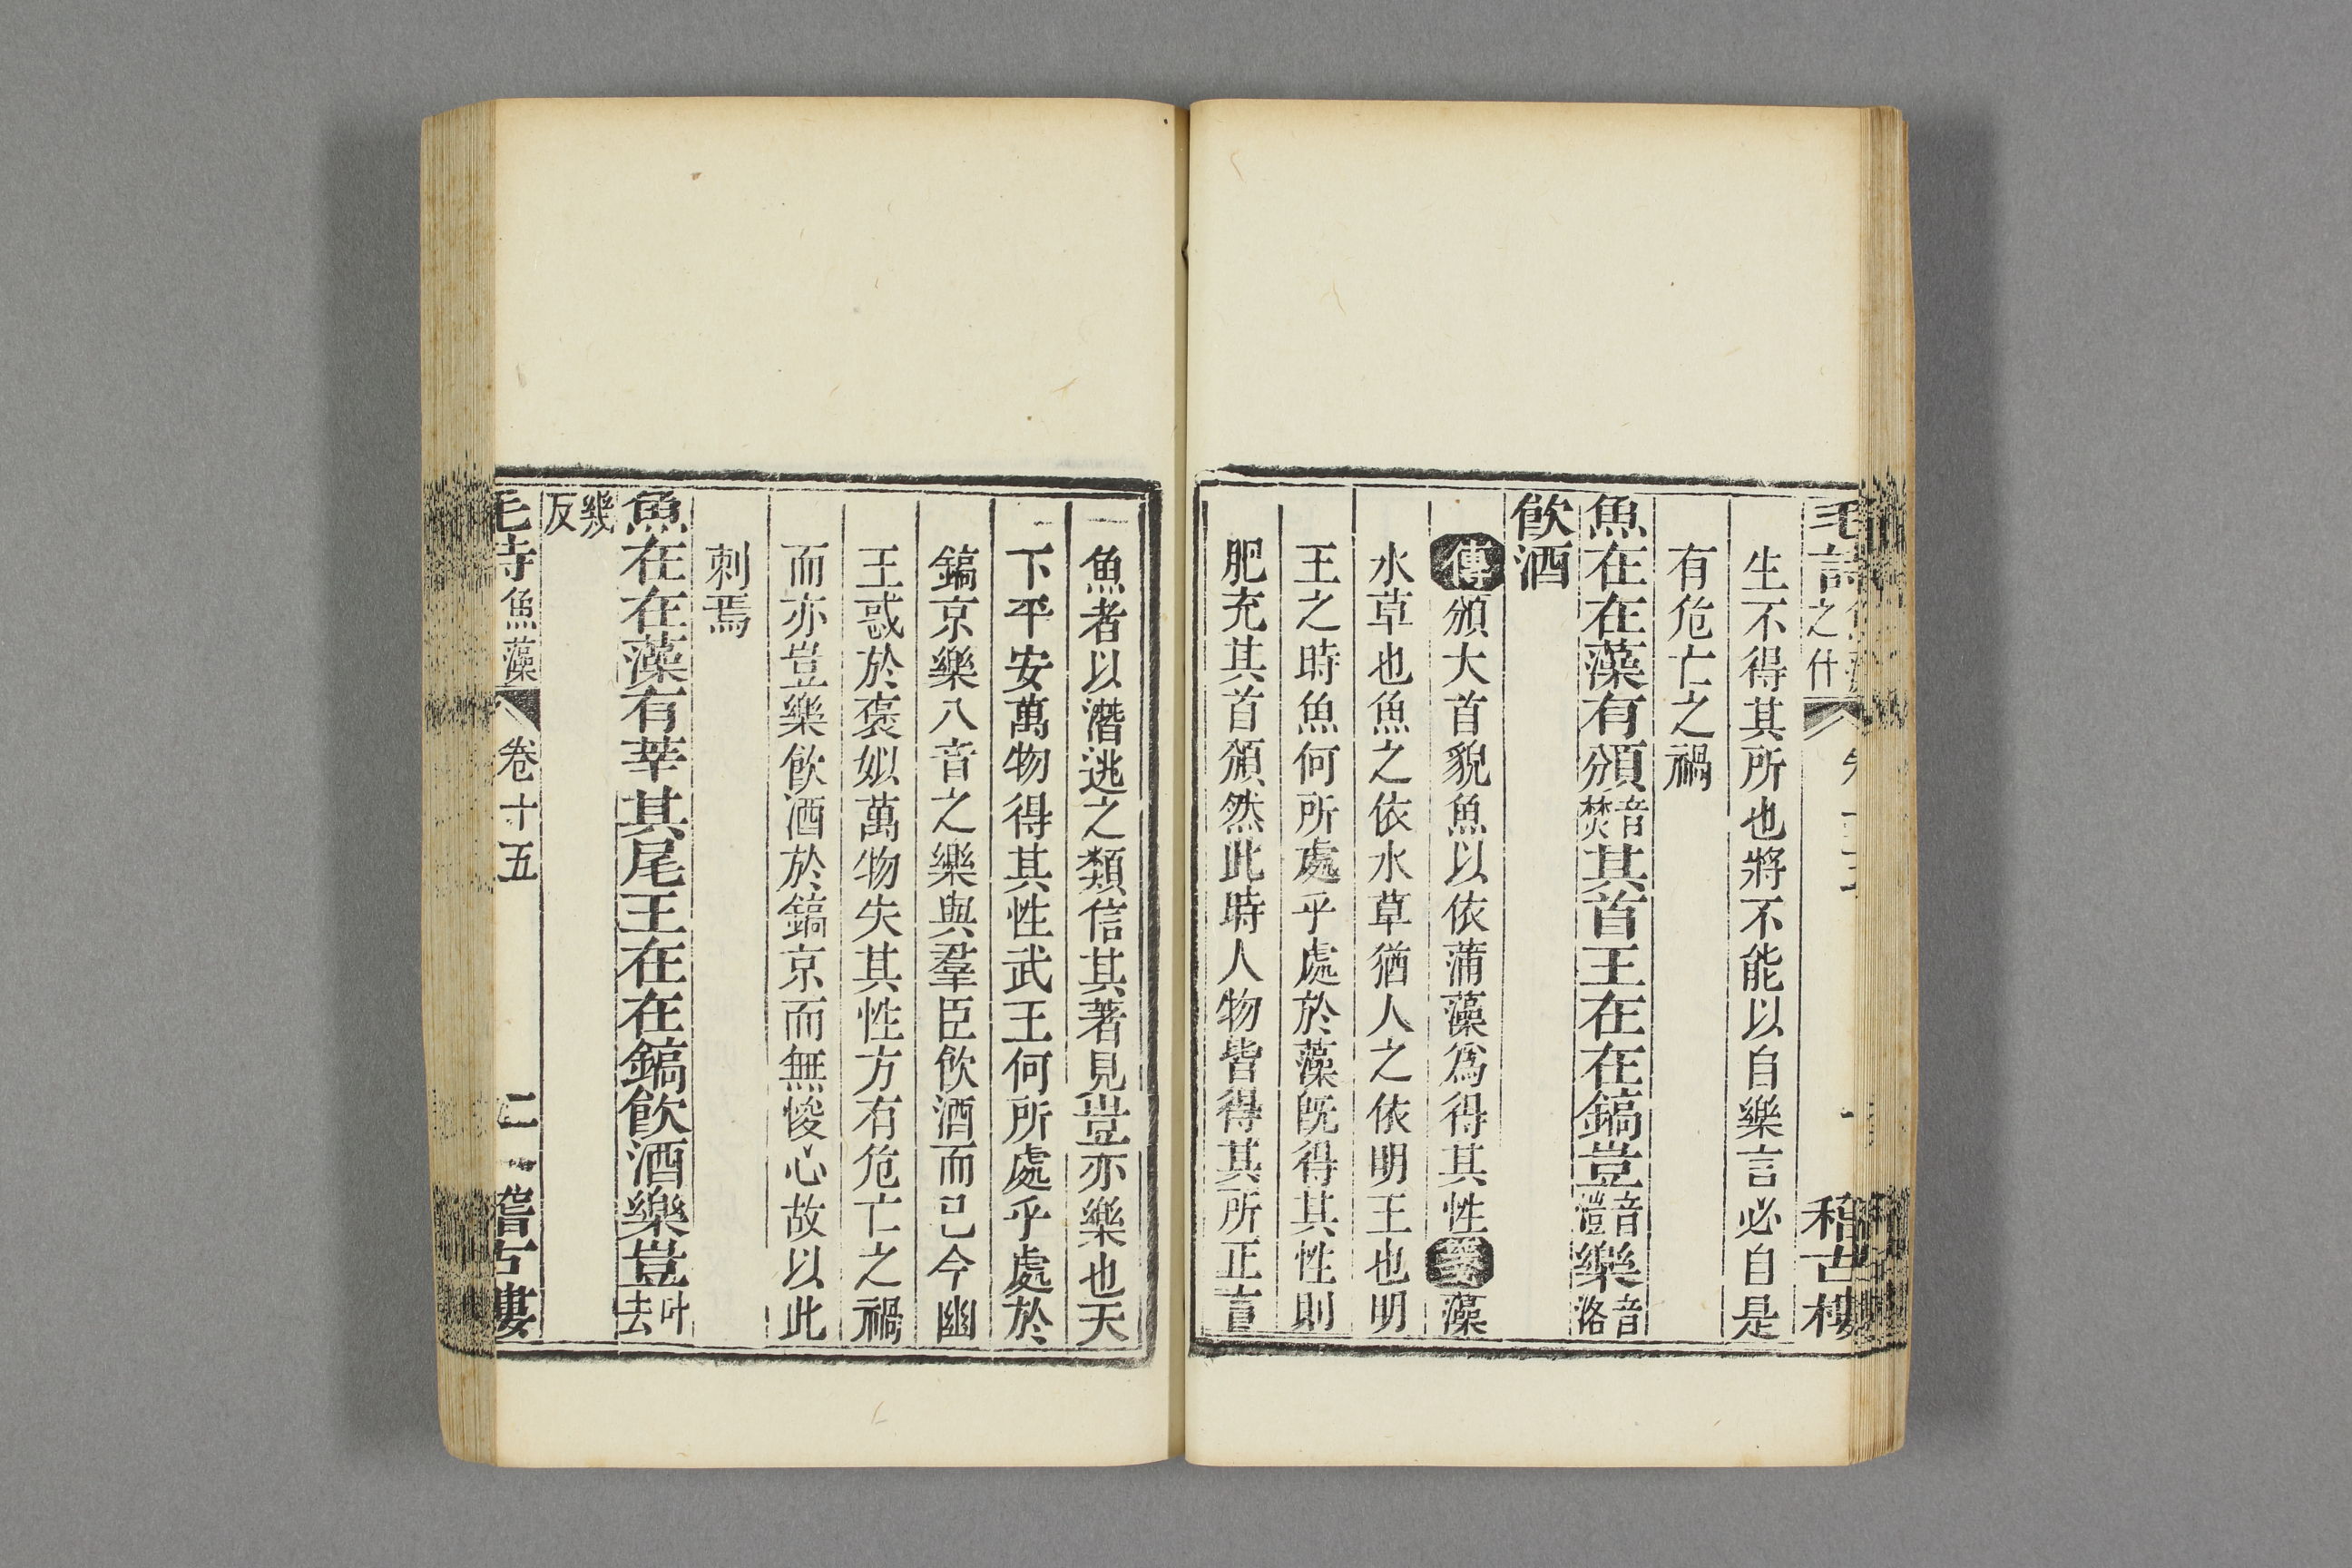 毛詩之什 稽古樓
生不得其所也將不能以自樂言必自是
有危亡之禍
魚在在藻有頒音焚其首王在在鎬豈音愷樂音洛
飲酒
傳頒大首貌魚以依蒲藻爲得其性箋藻
水草也魚之依水草猶人之依明王也明
王之時魚何所處乎處於藻旣得其性則
肥充其首頒然此時人物皆得其所正言
魚者以潛逃之類信其著見豈亦樂也天
下平安萬物得其性武王何所處乎處於
鎬京樂八音之樂與羣臣飲酒而已今幽
王惑於褒姒萬物失其性方有危亡之禍
而亦豈樂飲酒於鎬京而無悛心故以此
刺焉
魚在在藻有莘其尾王在在鎬飲酒樂豈叶去
幾反
毛詩魚藻 卷十五 二 稽古樓